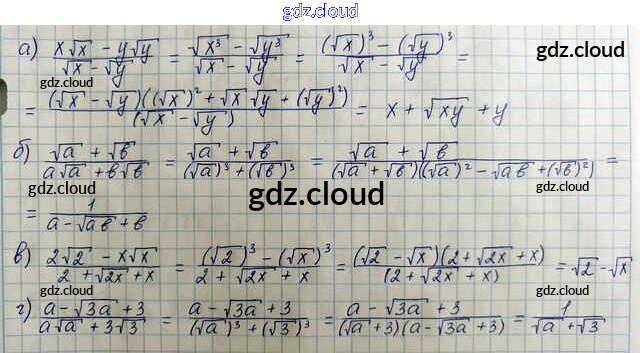 gdz.cloud
а) (x√x − y√y)/(√x − √y) = (√x³ − √y³)/(√x − √y) = ((√x)³ − (√y)³)/(√x − √y) =
gdz.cloud gdz.cloud
= ((√x − √y)((√x)² + √x √y + (√y)²))/(√x − √y) = x + √xy + y
б) (√a + √в)/(a√a + в√в) = (√a + √в)/((√a)³ + (√в)³) = (√a + √в)/((√a + √в)((√a)² − √aв + (√в)²)) =
gdz.cloud gdz.cloud gdz.cloud
= 1/(a − √aв + в)
в) (2√2 − x√x)/(2 + √2x + x) = ((√2)³ − (√x)³)/(2 + √2x + x) = ((√2 − √x)(2 + √2x + x))/(2 + √2x + x) = √2 − √x
gdz.cloud gdz.cloud
г) (a − √3a + 3)/(a√a + 3√3) = (a − √3a + 3)/((√a)³ + (√3)³) = (a − √3a + 3)/((√a + 3)(a − √3a + 3)) = 1/(√a + √3)
gdz.cloud